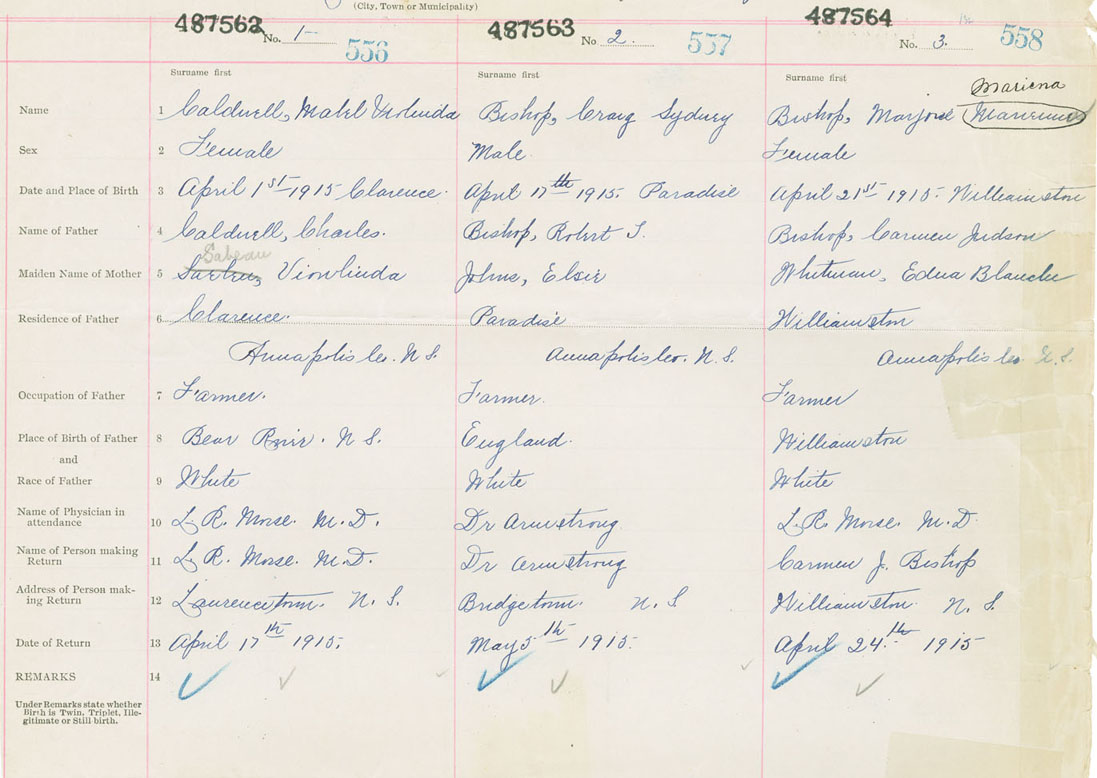 (City, Town or Municipality)
487562 No. 1 556 487563 No 2. 557 487564 No. 3. 558
Surname first Surname first Surname first
Mariena
Name 1 Caldwell, Mabel Violinda Bishop, Craig Sydney Bishop, Marjorie
Sex 2 Female Male. Female
Date and Place of Birth 3 April 1st 1915 Clarence. April 17th 1915. Paradise April 21st 1915. Williamston
Name of Father 4 Caldwell, Charles. Bishop, Robert S. Bishop, Carmen Judson
Sabeau
Maiden Name of Mother 5 Viovlinda Johns, Elsie Whitman, Edna Blanche
Residence of Father 6 Clarence. Paradise Williamston
Annapolis Co. N S. Annapolis Co. N. S. Annapolis Co N. S.
Occupation of Father 7 Farmer. Farmer. Farmer
Place of Birth of Father 8 Bear River. N S. England. Williamston
and
Race of Father 9 White White White
Name of Physician in
attendance 10 L. R. Morse. M. D. Dr Armstrong L. R. Morse. M. D.
Name of Person making
Return 11 L. R. Morse. M. D. Dr Armstrong Carmen J. Bishop
Address of Person mak-
ing Return 12 Laurencetown. N. S. Bridgetown. N. S Williamston. N. S.
Date of Return 13 April 17th 1915. May 5th 1915. April 24.th 1915
REMARKS 14
Under Remarks state whether
Birth is Twin, Triplet, Ille-
gitimate or Still birth.